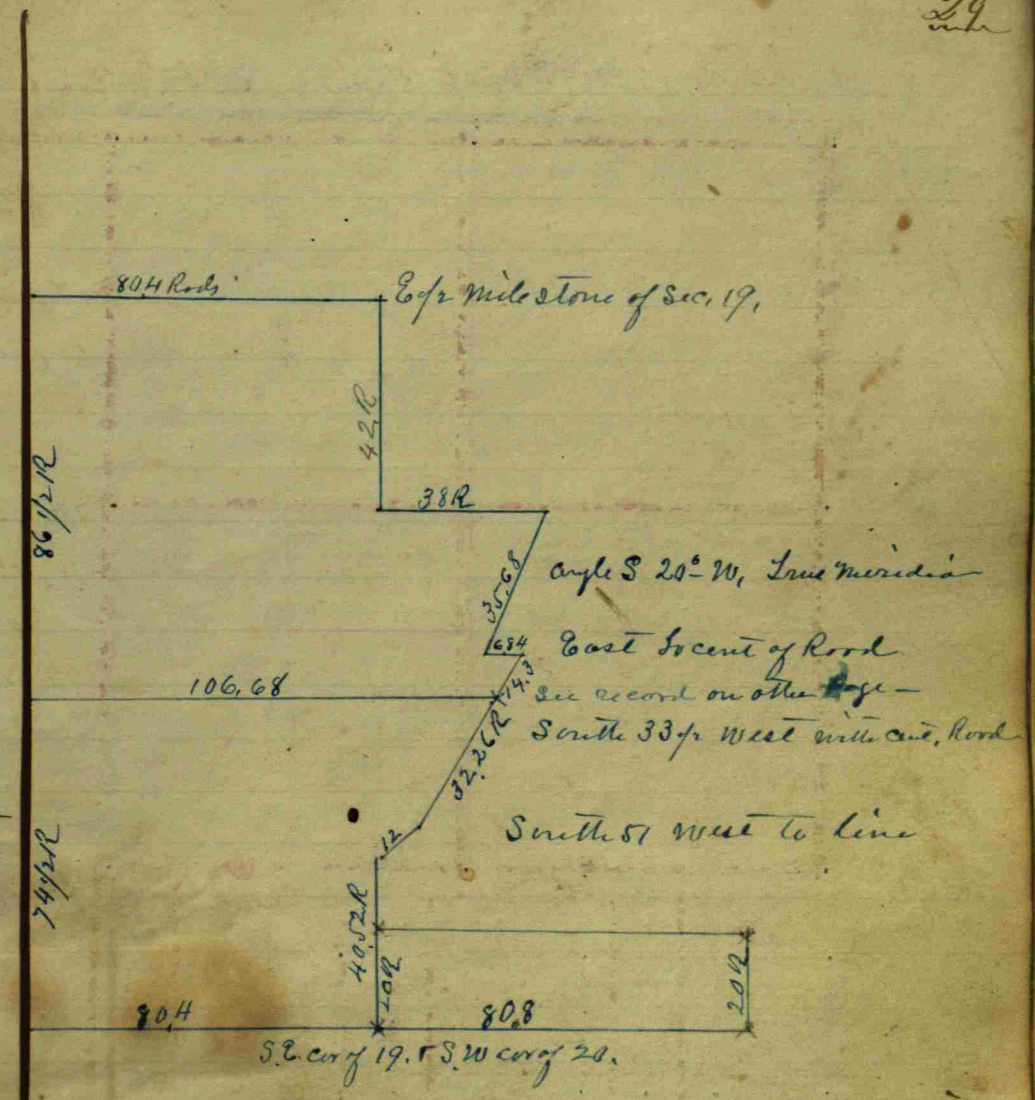 29
80.4 Rods
E 1/2 Mile stone of Sec. 19.
42 R
86 1/2 R
38 R
35.68
angle S 20° W, True Meridia
6.84
East to cent of Road
14.3
106.68
see record on other Page —
32.26 R
South 33 1/2 West with cent. Road
12
South 51 West to line
74 1/2 R
40.52 R
20 R
20 R
80.4
80.8
S.E. cor of 19. & S.W cor of 20.